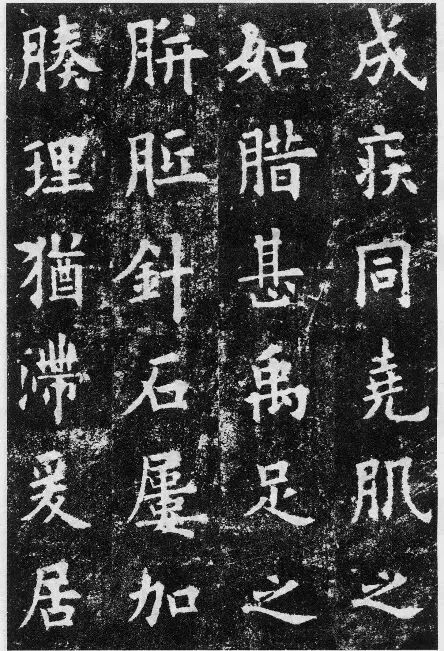 成疾同堯肌之
如腊甚禹足之
腁胝針石屢加
腠理猶滯爰居